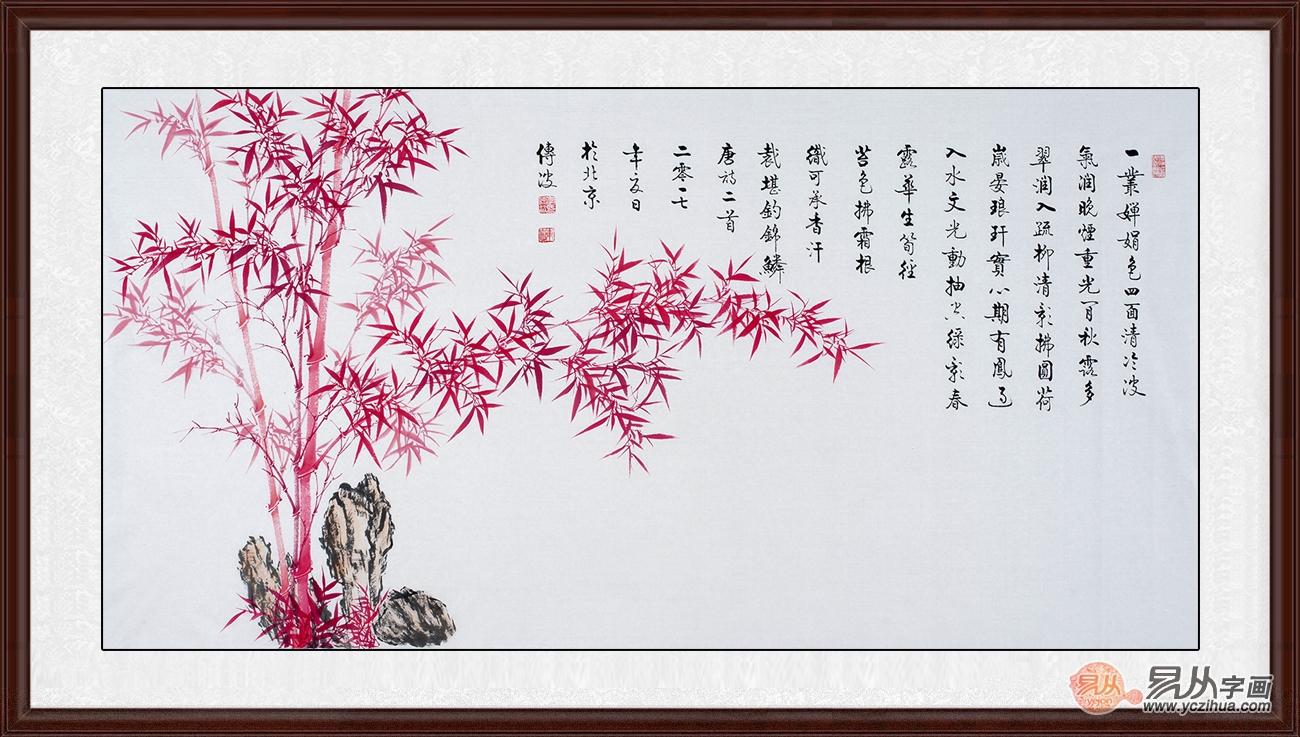 一叢嬋娟色四面清冷波
氣润晚煙重光閒秋露多
翠润入疏柳清影拂圓荷
歲晏琅玕實心期有鳳過
入水文光動抽空綠影春
露華生筍徑
苔色拂霜根
織可承香汗
裁堪釣錦鱗
唐詩二首
二零一七
年夏日
於北京
傳波
易从 易从字画
www.yczihua.com